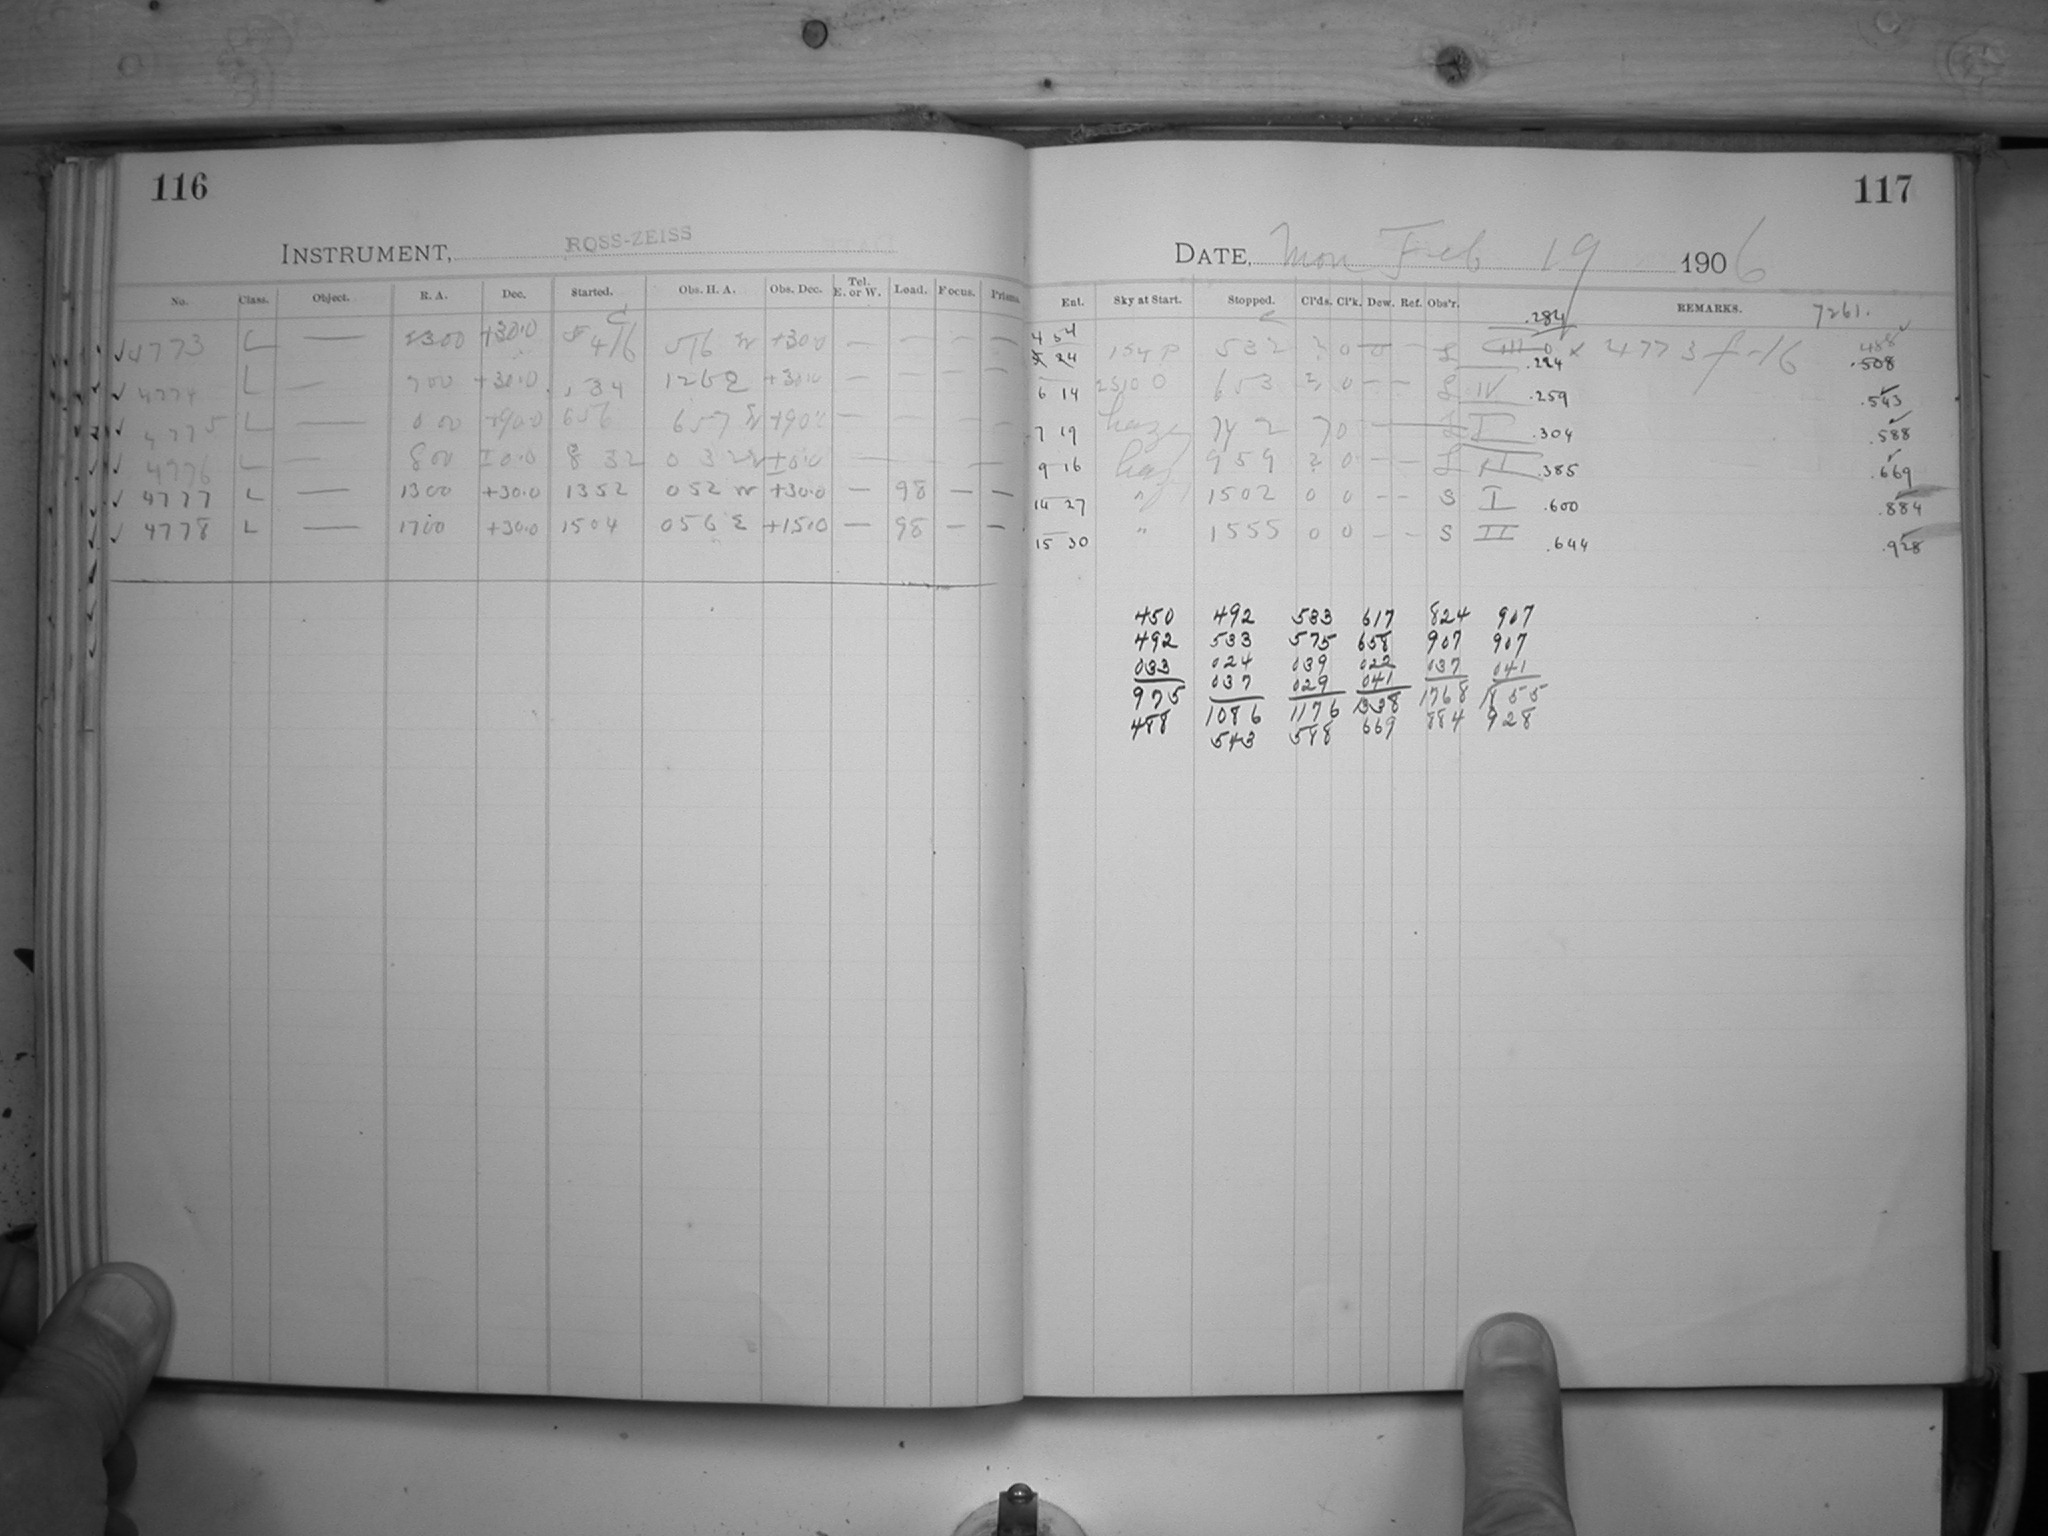 116
INSTRUMENT, ROSS-ZEISS
No. Class. Object. R. A. Dec. Started. Obs. H. A. Obs. Dec. Tel. E. or W. Load. Focus. Prisms.
4773 L — 2300 +30.0 516 W +30.0 — — — —
4774 L — 700 +30.0 534 126 E +30.0 — — — —
4775 L — 000 +90.0 656 657 W +90.0 — — — —
4776 L — 800 832 032 W — — — —
4777 L — 1300 +30.0 1352 052 W +30.0 — 98 — —
4778 L — 1700 +30.0 1504 056 E +15.0 — 98 — —
117
DATE, Mon Feb 19 1906
Ent. Sky at Start. Stopped. Cl'ds. Cl'k. Dew. Ref. Obs'r. REMARKS. 7261.
.284
4 54 488
5 24 154 P 532 2 0 — — L × 4773 f-16
.224 .508
6 14 653 2 0 — — L IV .259 .543
7 19 hazy 742 0 — — L I .304 .588
9 16 959 2 0 — — L II .385 .669
14 27 " 1502 0 0 — — S I .600 .884
15 30 " 1555 0 0 — — S II .644 .928
450 492 533 617 824 907
492 533 575 658 907 907
033 024 039 022 037 041
975 037 029 041 1768 1855
488 1086 1176 1338 884 928
543 588 669